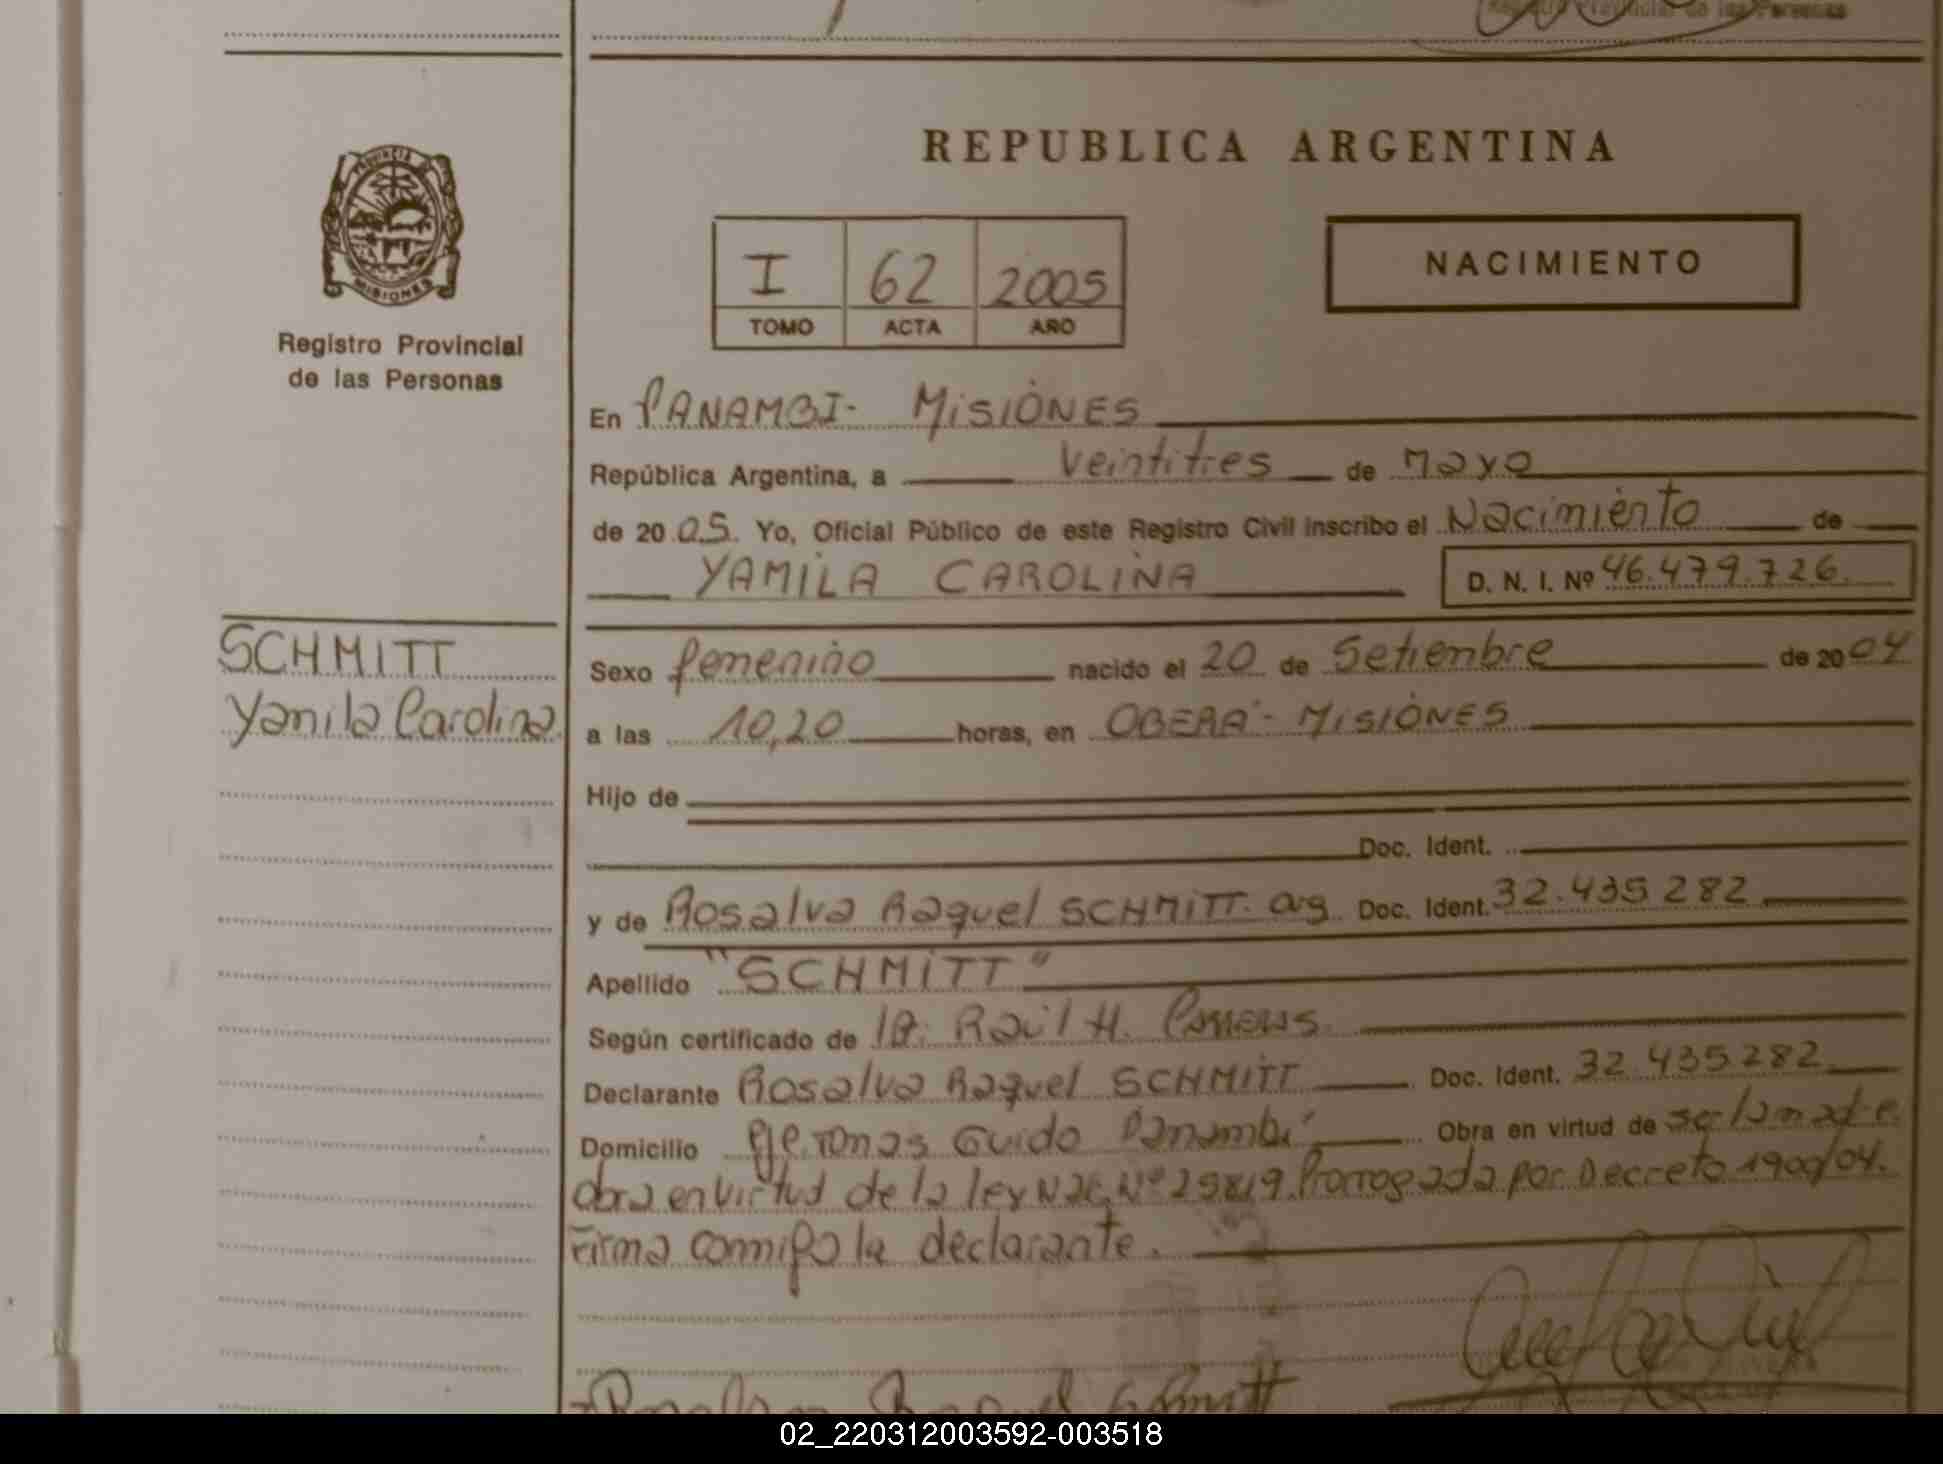 Registro Provincial de las Personas
PROVINCIA DE
MISIONES
Registro Provincial
de las Personas
REPUBLICA ARGENTINA
I 62 2005
TOMO ACTA AÑO
NACIMIENTO
En PANAMBI- MISIONES
República Argentina, a veintitres de Mayo
de 20 05. Yo, Oficial Público de este Registro Civil inscribo el Nacimiento de
YAMILA CAROLINA D. N. I. Nº 46.479.726.
SCHMITT
Yamila Carolina.
Sexo femenino nacido el 20 de Setiembre de 20 04
a las 10,20 horas, en OBERÁ - MISIONES
Hijo de
Doc. Ident.
y de Rosalva Raquel SCHMITT. arg Doc. Ident. 32.435.282
Apellido "SCHMITT"
Según certificado de Raúl H.
Declarante Rosalva Raquel SCHMITT Doc. Ident. 32.435.282
Domicilio Guido Panambí Obra en virtud de ser la madre
obra en virtud de la ley Nac. Nº Prorrogada por Decreto 1900/04.
Firma conmigo la declarante.
Schmitt
02_220312003592-003518